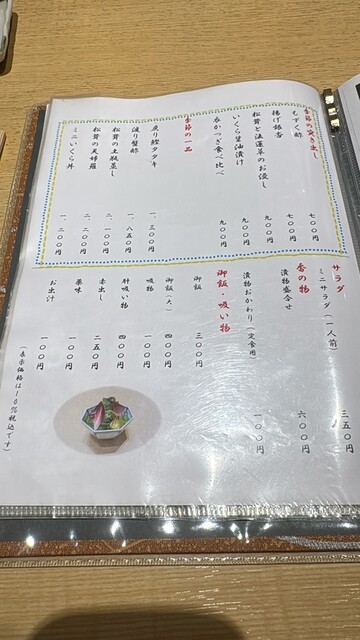 季節の突き出し
もずく酢 七〇〇円
揚げ銀杏 七〇〇円
松茸と法蓮草のお浸し 九〇〇円
いくら醤油漬け 九〇〇円
衣かつぎ食べ比べ 九〇〇円
季節の一品
炙り鰹タタキ 一、三〇〇円
渡り蟹酢 一、八五〇円
松茸の土瓶蒸し 二、一〇〇円
松茸の天婦羅 二、二〇〇円
ミニいくら丼 一、二〇〇円
サラダ
ミニサラダ(一人前) 三五〇円
香の物
漬物盛合せ 六〇〇円
漬物おかわり(定食用) 一〇〇円
御飯・吸い物
御飯 三〇〇円
御飯(大) 四〇〇円
吸物 一〇〇円
肝吸い物 四〇〇円
赤出し 二五〇円
薬味 一〇〇円
お出汁 一〇〇円
(表示価格は10%税込です)